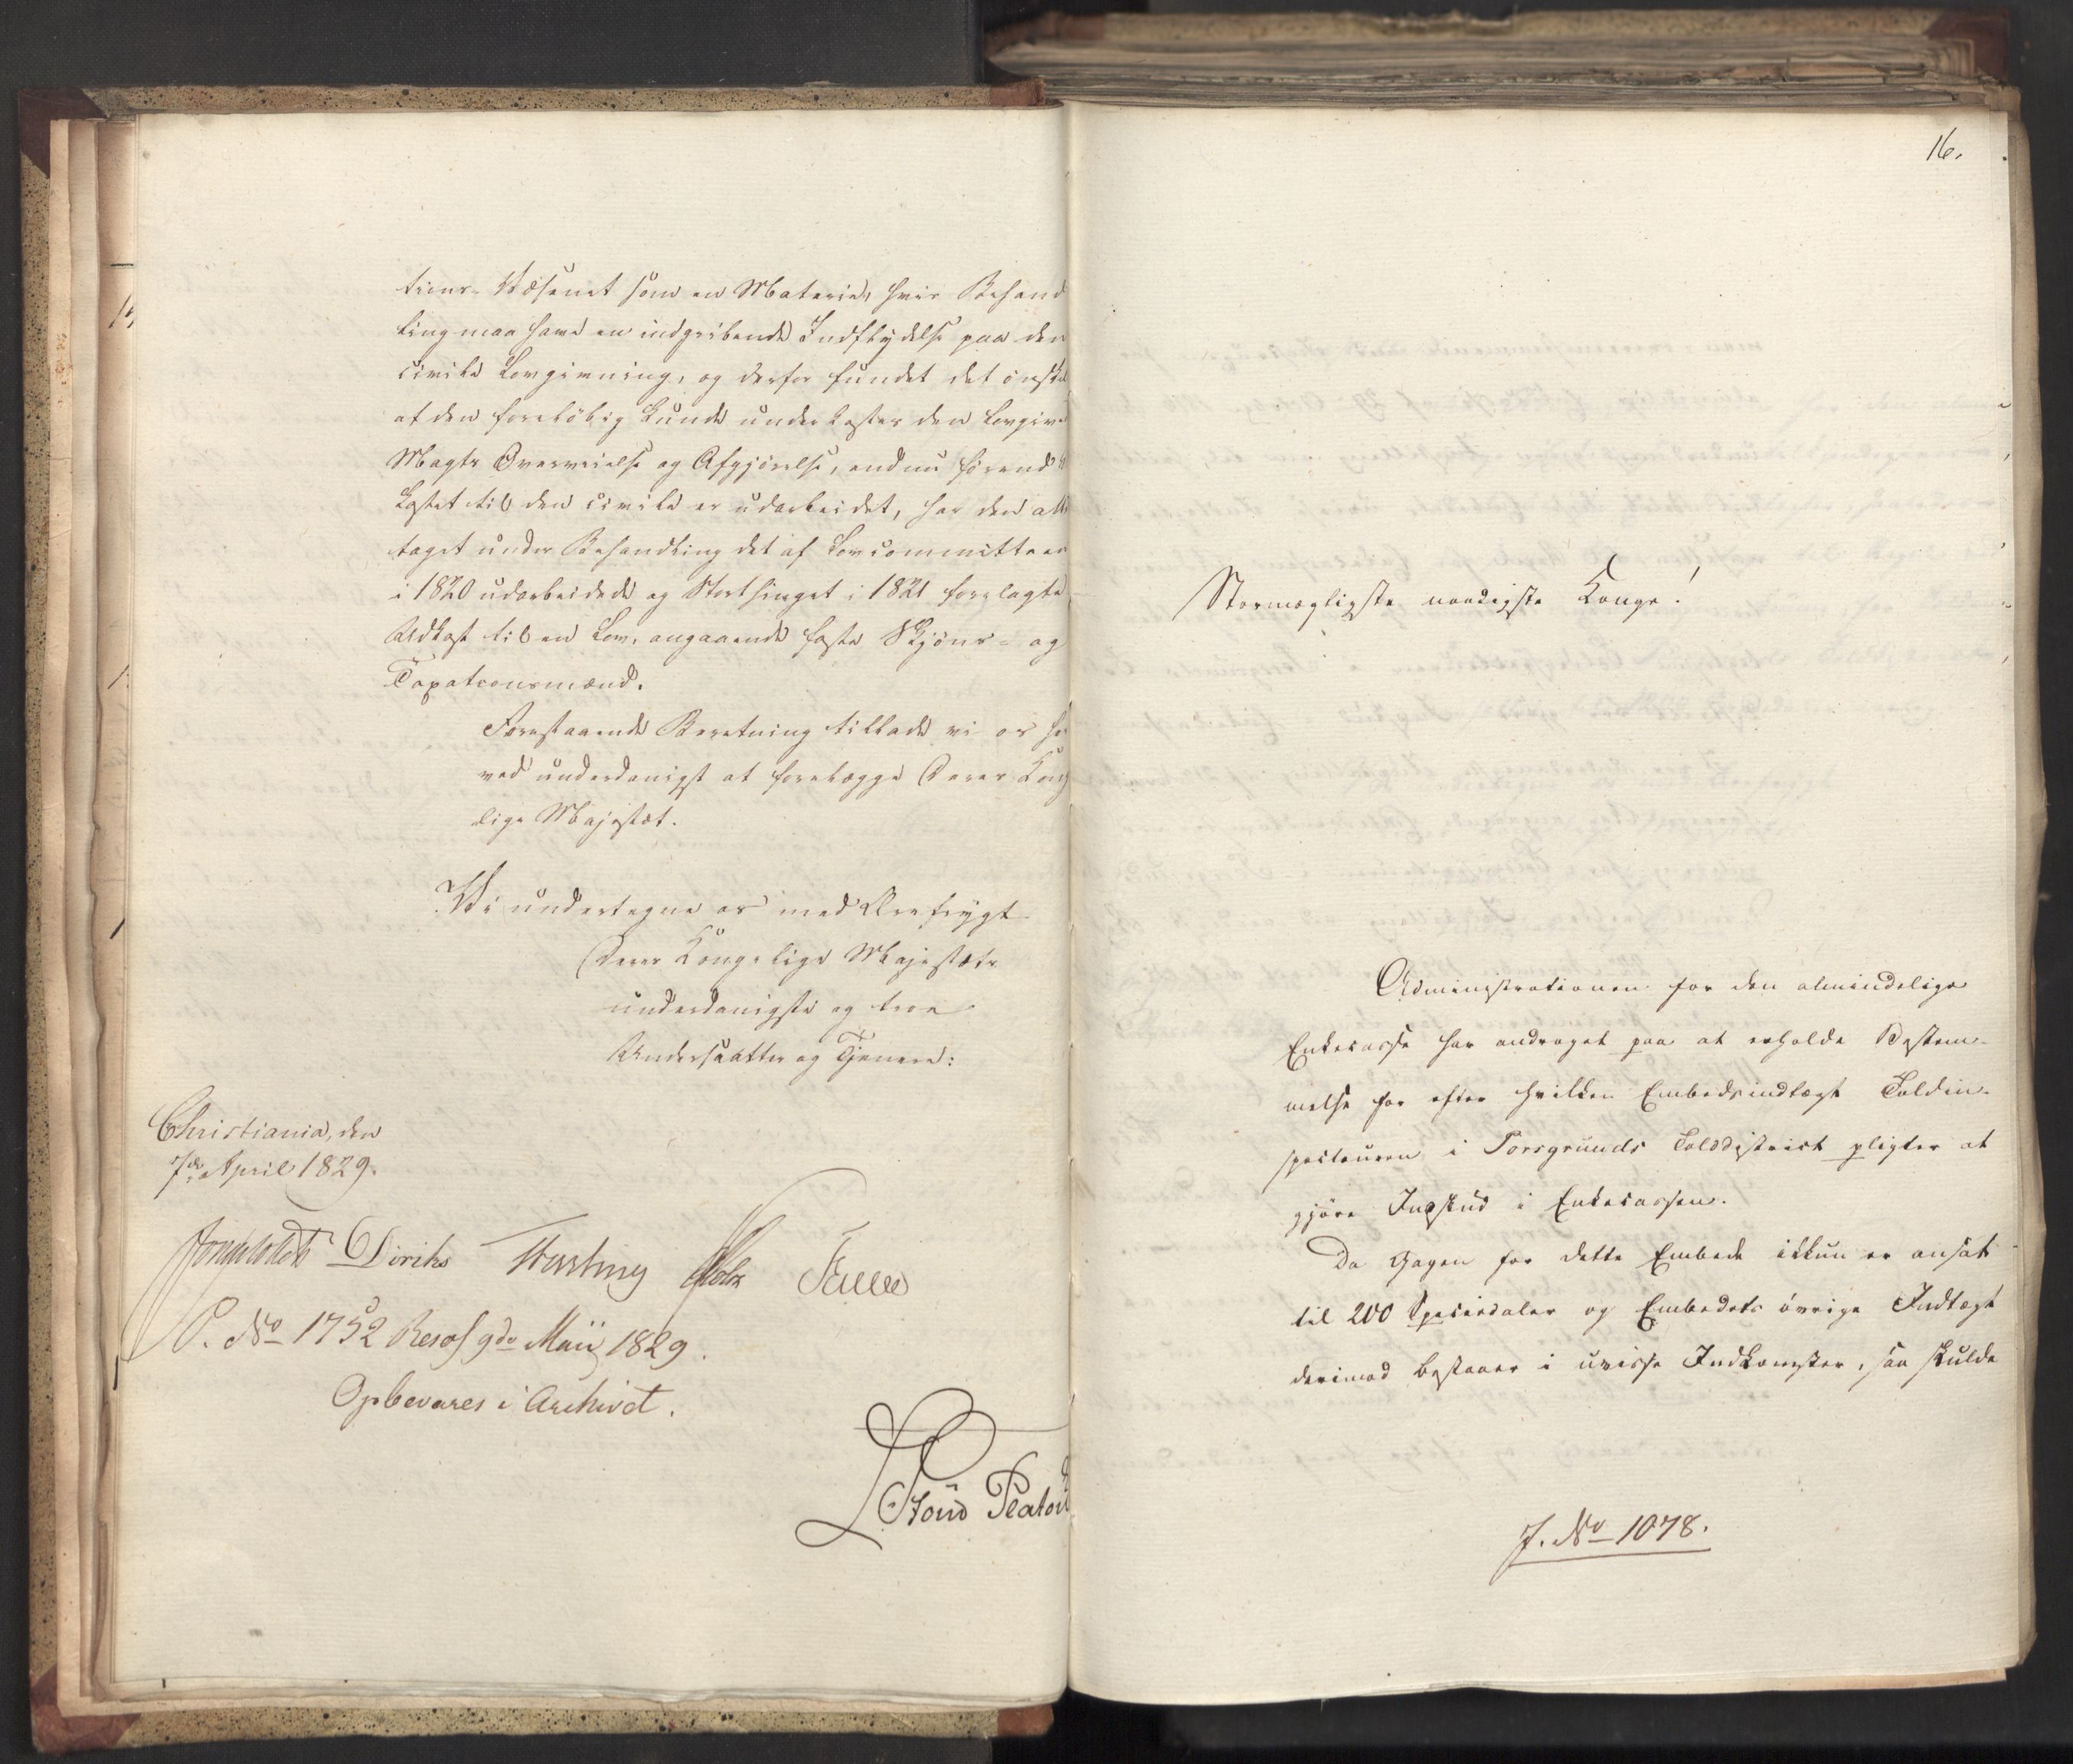 tions-Væsenet som en Materie, hvis Behand
ling maa have en indgribende Indflydelse paa den
civile Lovgivning, og derfor fundet det ønske
at den foreløbig kunde underkastes den lovgive
Magts Overveielse og Afgjørelse, endnu førend
kastet til den civile er udarbeidet, har den all
taget under Behandling det af Lovcommitteen
i 1820 udarbeidede og Storthinget i 1821 forelagte
Udkast til en Lov, angaaende faste Skjøns- og
Taxationsmænd.
Forestaaende Beretning tillade vi os he
ved underdanigst at forelægge Deres Konge
lige Majestæt.
Vi undertegne os med Ærefrygt
Deres Kongelige Majestæts
underdanigste og troe
Undersaatter og Tjenere:
Christiania, den
7de April 1829.
Diriks Falsen
P. No 1752 Resol 9de Maii 1829.
Opbevares i Archivet.
16.
Stormægtigste naadigste Konge!
Administrationen for den almindelige
Enkecasse har andraget paa at erholde Bestem-
melse for efter hvilken Embedsindtægt Toldin-
specteuren i Porsgrunds Tolddistrict pligter at
gjøre Indskud i Enkecassen.
Da Gagen for dette Embede ikkun er ansat
til 200 Speciesdaler og Embedets øvrige Indtægt
derimod bestaaer i uvisse Indkomster, saa skulde
J. No 1078.